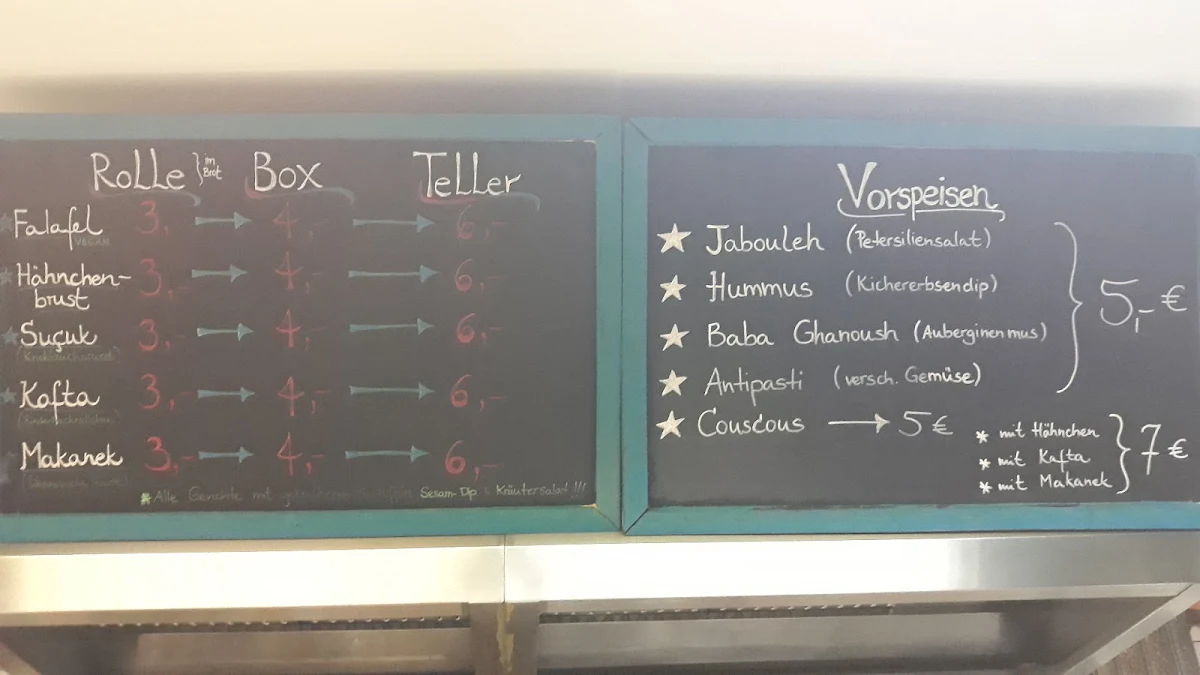 Rolle } im Brot Box Teller
Falafel 3,- → 4,- → 6,-
VEGAN
Hähnchen- 3,- → 4,- → 6,-
brust
Suçuk 3,- → 4,- → 6,-
(Knoblauchwurst)
Kafta 3,- → 4,- → 6,-
Makanek 3,- → 4,- → 6,-
*Alle Gerichte mit Sesam-Dip & Kräutersalat!!!
Vorspeisen
★ Jabouleh (Petersiliensalat)
★ Hummus (Kichererbsendip)
★ Baba Ghanoush (Auberginenmus)
★ Antipasti (versch. Gemüse)
} 5,- €
★ Couscous → 5 €
* mit Hähnchen
* mit Kafta
* mit Makanek
} 7 €